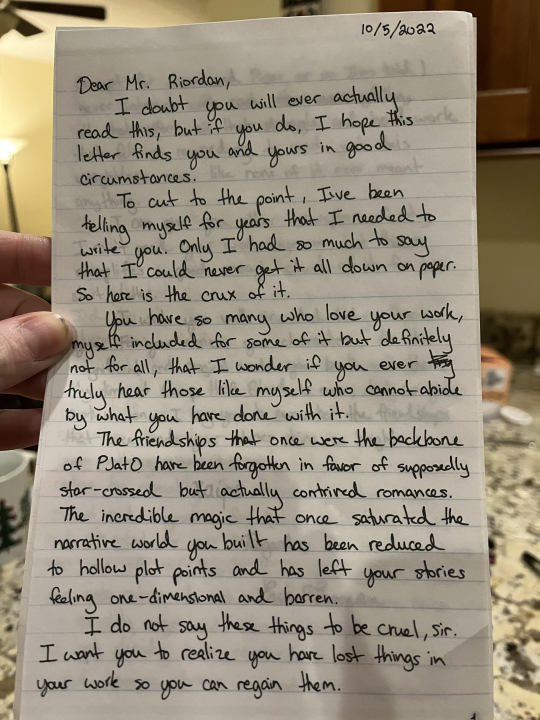 10/5/2022
Dear Mr. Riordan,
I doubt you will ever actually
read this, but if you do, I hope this
letter finds you and yours in good
circumstances.
To cut to the point, I've been
telling myself for years that I needed to
write you. Only I had so much to say
that I could never get it all down on paper.
So here is the crux of it.
You have so many who love your work,
myself included for some of it but definitely
not for all, that I wonder if you ever
truly hear those like myself who cannot abide
by what you have done with it.
The friendships that once were the backbone
of PJatO have been forgotten in favor of supposedly
star-crossed but actually contrived romances.
The incredible magic that once saturated the
narrative world you built has been reduced
to hollow plot points and has left your stories
feeling one-dimensional and barren.
I do not say these things to be cruel, sir.
I want you to realize you have lost things in
your work so you can regain them.